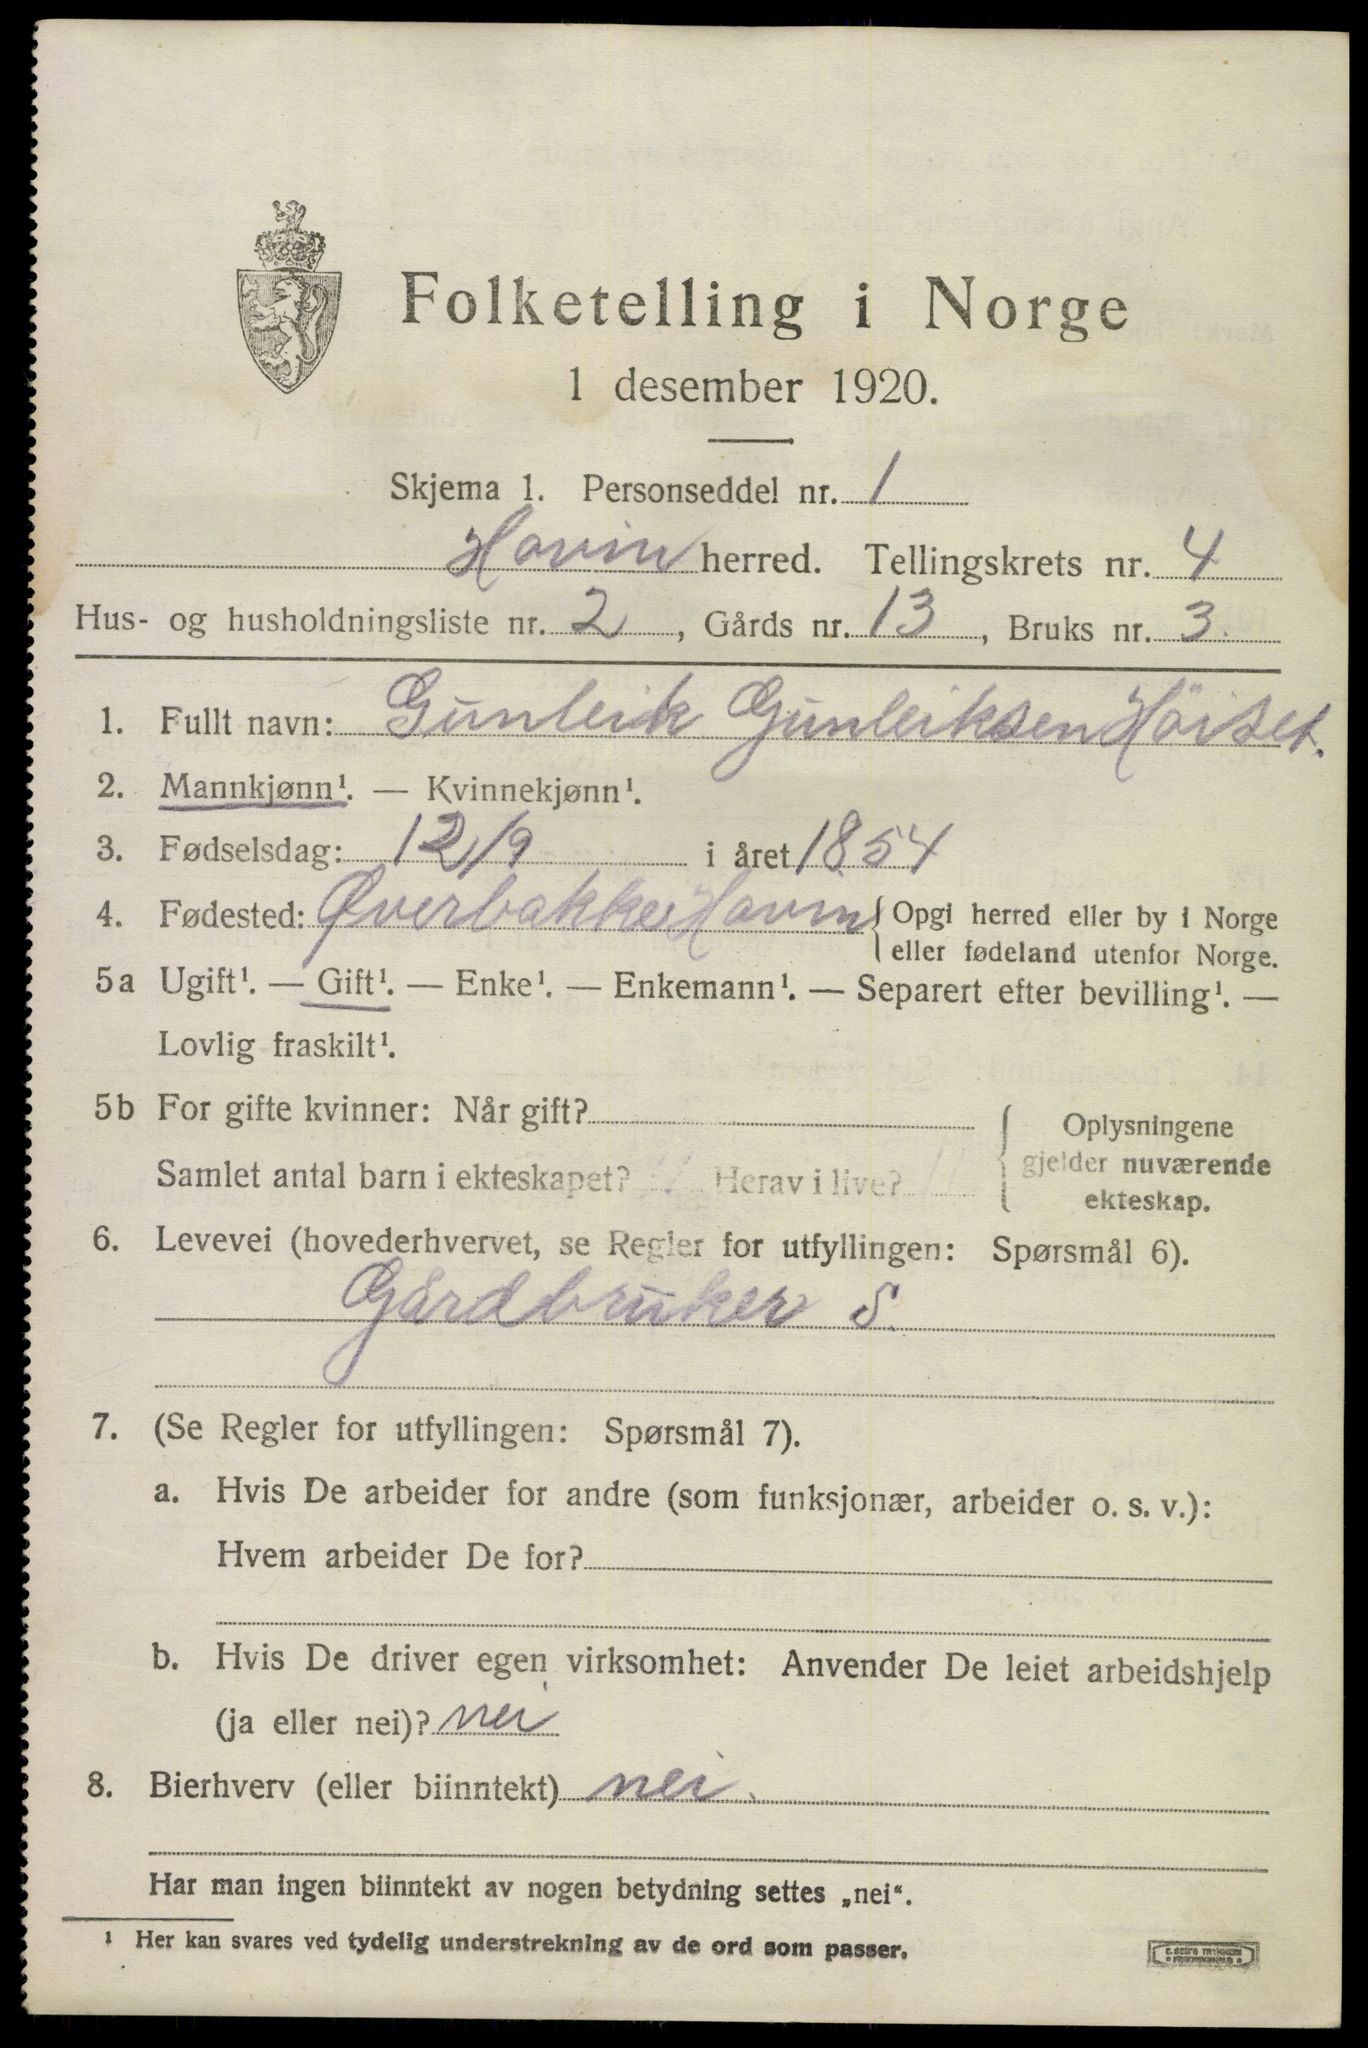 Folketelling i Norge
1 desember 1920.
Skjema 1. Personseddel nr. 1
Hovin herred. Tellingskrets nr. 4
Hus- og husholdningsliste nr. 2, Gårds nr. 13, Bruks nr. 3.
1. Fullt navn: Gunleik Gunleiksen Höiset.
2. Mannkjønn¹. — Kvinnekjønn¹.
3. Fødselsdag: 12/9 i året 1854
4. Fødested: Øverbakke Hovin { Opgi herred eller by i Norge
eller fødeland utenfor Norge.
5a Ugift¹. — Gift¹. — Enke¹. — Enkemann¹. — Separert efter bevilling¹. —
Lovlig fraskilt¹.
5b For gifte kvinner: Når gift? { Oplysningene
Samlet antal barn i ekteskapet? Herav i live? gjelder nuværende
ekteskap.
6. Levevei (hovederhvervet, se Regler for utfyllingen: Spørsmål 6).
Gårdbruker S.
7. (Se Regler for utfyllingen: Spørsmål 7).
a. Hvis De arbeider for andre (som funksjonær, arbeider o. s. v.):
Hvem arbeider De for?
b. Hvis De driver egen virksomhet: Anvender De leiet arbeidshjelp
(ja eller nei)? nei
8. Bierhverv (eller biinntekt) nei.
Har man ingen biinntekt av nogen betydning settes „nei“.
¹ Her kan svares ved tydelig understrekning av de ord som passer.